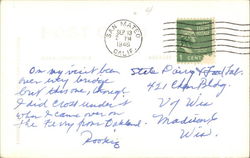 SAN MATEO
SEP 13
PM
1946
CALIF.
1 CENT
On my visit been
over every bridge
but this one, though
I did cross under it
when I came over on
the Ferry from Oakland.
State Dairy & Food Lab.
421 Chem Bldg.
U of Wis
Madison
Wis.